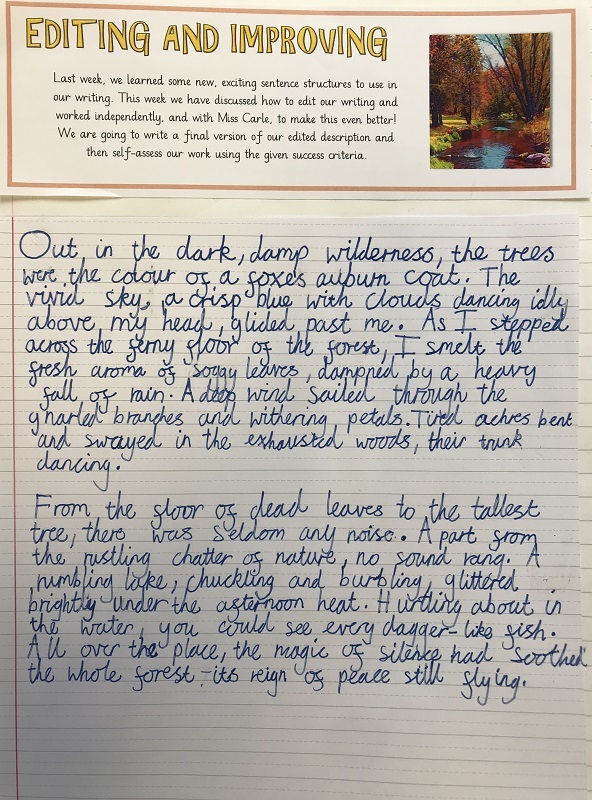 EDITING AND IMPROVING
Last week, we learned some new, exciting sentence structures to use in
our writing. This week we have discussed how to edit our writing and
worked independently, and with Miss Carle, to make this even better!
We are going to write a final version of our edited description and
then self-assess our work using the given success criteria.
Out in the dark, damp wilderness, the trees
were the colour of a foxes auburn coat. The
vivid sky, a crisp blue with clouds dancing idly
above my head, glided past me. As I stepped
across the ferny floor of the forest, I smelt the
fresh aroma of soggy leaves, dampned by a heavy
fall of rain. A deep wind sailed through the
gnarled branches and withering petals. Tired achres bent
and swayed in the exhausted woods, their trunk
dancing.
From the floor of dead leaves to the tallest
tree, there was seldom any noise. Apart from
the rustling chatter of nature, no sound rang. A
rumbling lake, chuckling and burbling, glittered
brightly under the afternoon heat. Hurtling about in
the water, you could see every dagger-like fish.
All over the place, the magic of silence had soothed
the whole forest - its reign of peace still flying.